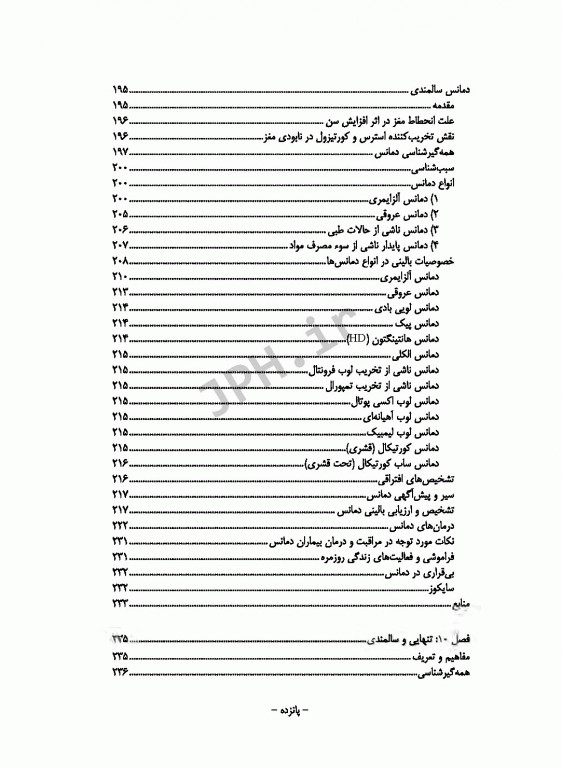 دمانس سالمندی ........ ۱۹۵
مقدمه ........ ۱۹۵
علت انحطاط مغز در اثر افزایش سن ........ ۱۹۶
نقش تخریب‌کننده استرس و کورتیزول در نابودی مغز ........ ۱۹۶
همه‌گیرشناسی دمانس ........ ۱۹۷
سبب‌شناسی ........ ۲۰۰
انواع دمانس ........ ۲۰۰
۱) دمانس آلزایمری ........ ۲۰۰
۲) دمانس عروقی ........ ۲۰۵
۳) دمانس ناشی از حالات طبی ........ ۲۰۶
۴) دمانس پایدار ناشی از سوء مصرف مواد ........ ۲۰۷
خصوصیات بالینی در انواع دمانس‌ها ........ ۲۰۸
دمانس آلزایمری ........ ۲۱۰
دمانس عروقی ........ ۲۱۳
دمانس لویی بادی ........ ۲۱۴
دمانس پیک ........ ۲۱۴
دمانس هانتینگتون (HD) ........ ۲۱۴
دمانس الکلی ........ ۲۱۵
دمانس ناشی از تخریب لوب فرونتال ........ ۲۱۵
دمانس ناشی از تخریب تمپورال ........ ۲۱۵
دمانس لوب اکسی پوتال ........ ۲۱۵
دمانس لوب آهیانه‌ای ........ ۲۱۵
دمانس لوب لیمبیک ........ ۲۱۵
دمانس کورتیکال (قشری) ........ ۲۱۵
دمانس ساب کورتیکال (تحت قشری) ........ ۲۱۶
تشخیص‌های افتراقی ........ ۲۱۶
سیر و پیش‌آگهی دمانس ........ ۲۱۷
تشخیص و ارزیابی بالینی دمانس ........ ۲۱۷
درمان‌های دمانس ........ ۲۲۲
نکات مورد توجه در مراقبت و درمان بیماران دمانس ........ ۲۳۱
فراموشی و فعالیت‌های زندگی روزمره ........ ۲۳۱
بی‌قراری در دمانس ........ ۲۳۲
سایکوز ........ ۲۳۲
منابع ........ ۲۳۳
فصل ۱۰: تنهایی و سالمندی ........ ۲۳۵
مفاهیم و تعریف ........ ۲۳۵
همه‌گیرشناسی ........ ۲۳۶
- پانزده -
JPH.ir